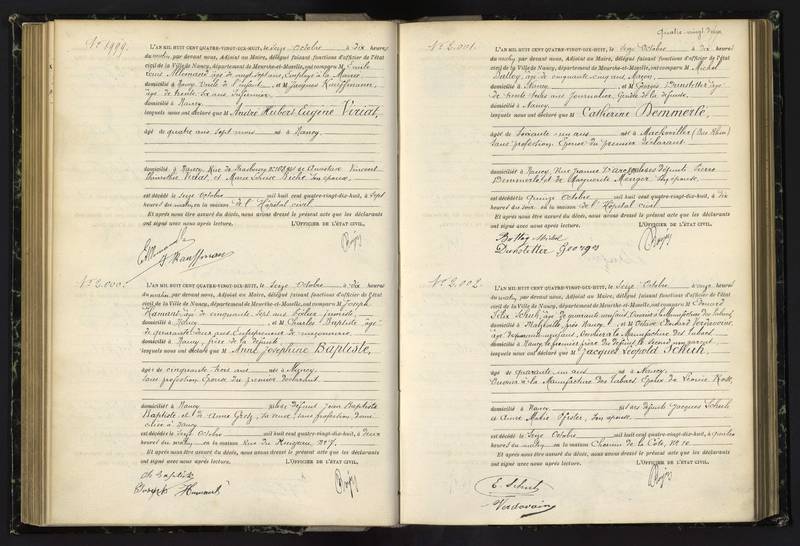 Quatre-vingt-deux
N° 1999.
L'AN MIL HUIT CENT QUATRE-VINGT-DIX-HUIT, le seize Octobre à dix heures
du matin, par devant nous, Adjoint au Maire, délégué faisant fonctions d'officier de l'état
civil de la Ville de Nancy, département de Meurthe-et-Moselle, ont comparu M. Emile
Louis Allemand âgé de vingt sept ans, Employé à la Mairie
domicilié à Nancy et M. Jacques Kauffmann,
âgé de trente six ans Infirmier
domicilié à Nancy
lesquels nous ont déclaré que M André Hubert Eugène Viriat,
âgé de quatre ans sept mois né à Nancy,
domicilié à Nancy, Rue de Strasbourg N° 108 Vincent
et Marie Louise son épouse,
est décédé le seize Octobre mil huit cent quatre-vingt-dix-huit, à sept
heures du matin en la maison de l'Hôpital civil.
Et après nous être assuré du décès, nous avons dressé le présent acte que les déclarants
ont signé avec nous après lecture. L'OFFICIER DE L'ÉTAT CIVIL,
E. Allemand
J. Kauffmann
N° 2.000.
L'AN MIL HUIT CENT QUATRE-VINGT-DIX-HUIT, le seize Octobre à dix heures
du matin, par devant nous, Adjoint au Maire, délégué faisant fonctions d'officier de l'état
civil de la Ville de Nancy, département de Meurthe-et-Moselle, ont comparu M. Joseph
Hamant, âgé de cinquante sept ans
domicilié à Nancy, et M. Charles Baptiste âgé
de quarante deux ans Entrepreneur de maçonnerie
domicilié à Nancy, frère de la défunte
lesquels nous ont déclaré que M Anne Joséphine Baptiste,
âgée de cinquante trois ans née à
sans profession, Epouse du premier déclarant
domiciliée à Nancy fille des défunt Jean Baptiste
Baptiste et de Anne sa veuve, sans profession, domi-
ciliée à Nancy
est décédée le seize Octobre mil huit cent quatre-vingt-dix-huit, à deux
heures du matin en la maison Rue du N° 7,
Et après nous être assuré du décès, nous avons dressé le présent acte que les déclarants
ont signé avec nous après lecture. L'OFFICIER DE L'ÉTAT CIVIL,
Ch Baptiste
Joseph Hamant
N° 2.001.
L'AN MIL HUIT CENT QUATRE-VINGT-DIX-HUIT, le seize Octobre à dix heures
du matin, par devant nous, Adjoint au Maire, délégué faisant fonctions d'officier de l'état
civil de la Ville de Nancy, département de Meurthe-et-Moselle, ont comparu M. Michel
âgé de cinquante cinq ans
domicilié à Nancy et M. Georges âgé
de trente ans Journalier, Gendre de la défunte
domicilié à Nancy,
lesquels nous ont déclaré que M Catherine Demmerlé,
âgée de soixante un ans née à Mackwiller (Bas Rhin)
sans profession, Epouse du premier déclarant
domiciliée à Nancy, Rue Jeanne d'Arc fille des défunts Pierre
Demmerlé et de Marguerite son épouse,
est décédée le quinze Octobre mil huit cent quatre-vingt-dix-huit, à dix
heures du soir en la maison de l'Hôpital civil.
Et après nous être assuré du décès, nous avons dressé le présent acte que les déclarants
ont signé avec nous après lecture. L'OFFICIER DE L'ÉTAT CIVIL,
Michel
Georges
N° 2.002.
L'AN MIL HUIT CENT QUATRE-VINGT-DIX-HUIT, le seize Octobre à onze heures
du matin, par devant nous, Adjoint au Maire, délégué faisant fonctions d'officier de l'état
civil de la Ville de Nancy, département de Meurthe-et-Moselle, ont comparu M. Edouard
Félix Schuh, âgé de quarante neuf ans, Ouvrier à la Manufacture des tabacs,
domicilié à Malzéville, près Nancy, et M. Edouard
Ouvrier à la Manufacture des tabacs
domicilié à Nancy, le premier frère du défunt, le second non parent,
lesquels nous ont déclaré que M Jacques Léopold Schuh,
âgé de quarante un ans né à Nancy
Ouvrier à la Manufacture des tabacs, Epoux de Léonie
domicilié à Nancy fils des défunts Jacques Schuh
et Anne Marie son épouse,
est décédé le seize Octobre mil huit cent quatre-vingt-dix-huit, à quatre
heures du matin en la maison Chemin de la Côte, N° 10
Et après nous être assuré du décès, nous avons dressé le présent acte que les déclarants
ont signé avec nous après lecture. L'OFFICIER DE L'ÉTAT CIVIL,
E. Schuh